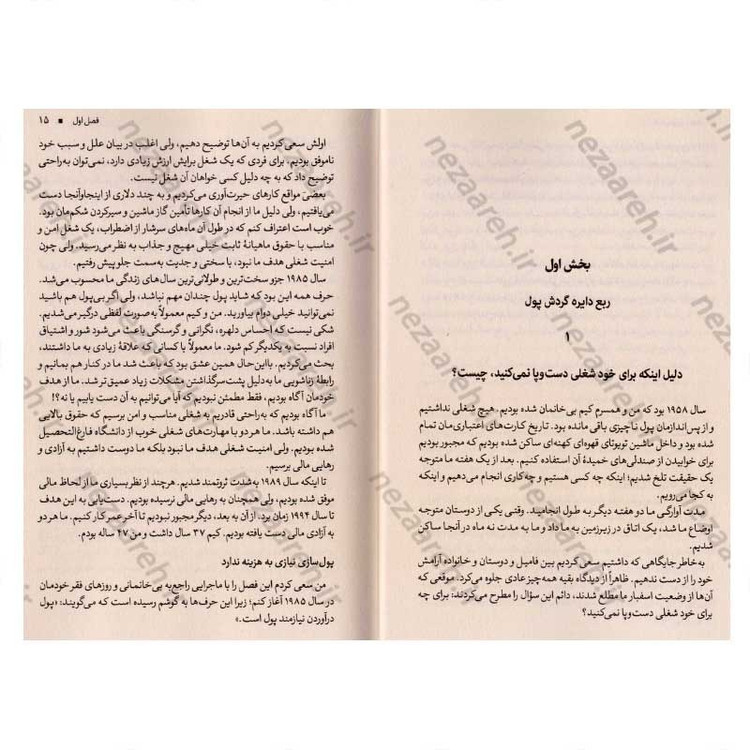 بخش اول
ربع دایره گردش پول
۱
دلیل اینکه برای خود شغلی دست‌وپا نمی‌کنید، چیست؟
سال ۱۹۵۸ بود که من و همسرم کیم بی‌خانمان شده بودیم. هیچ شغلی نداشتیم
و از پس‌اندازمان پول ناچیزی باقی مانده بود. تاریخ کارت‌های اعتباری‌مان تمام
شده بود و داخل ماشین تویوتای قهوه‌ای کهنه‌ای ساکن شده بودیم که مجبور بودیم
برای خوابیدن از صندلی‌های خمیدهٔ آن استفاده کنیم. بعد از یک هفته ما متوجه
یک حقیقت تلخ شدیم؛ اینکه چه کسی هستیم و چه‌کاری انجام می‌دهیم و اینکه
به کجا می‌رویم.
مدت آوارگی ما دو هفته دیگر به طول انجامید. وقتی یکی از دوستان متوجه
اوضاع ما شد، یک اتاق در زیرزمین به ما داد و ما به مدت نه ماه در آنجا ساکن
شدیم.
به‌خاطر جایگاهی که داشتیم سعی کردیم بین فامیل و دوستان و خانواده آرامش
خود را از دست ندهیم. ظاهراً از دیدگاه بقیه همه‌چیز عادی جلوه می‌کرد. موقعی که
آن‌ها از وضعیت اسفبار ما مطلع شدند، دائم این سؤال را مطرح می‌کردند: برای چه
برای خود شغلی دست‌وپا نمی‌کنید؟
فصل اول ■ ۱۵
اولش سعی کردیم به آن‌ها توضیح دهیم، ولی اغلب در بیان علل و سبب خود
ناموفق بودیم. برای فردی که یک شغل برایش ارزش زیادی دارد، نمی‌توان به‌راحتی
توضیح داد که به چه دلیل کسی خواهان آن شغل نیست.
بعضی مواقع کارهای حیرت‌آوری می‌کردیم و به چند دلاری از اینجاوآنجا دست
می‌یافتیم، ولی دلیل ما از انجام آن کارها تأمین گاز ماشین و سیرکردن شکم‌مان بود.
خوب است اعتراف کنم که در طول آن ماه‌های سرشار از اضطراب، یک شغل امن و
مناسب با حقوق ماهیانهٔ ثابت خیلی مهیج و جذاب به نظر می‌رسید. ولی چون
امنیت شغلی هدف ما نبود، با سختی و جدیت به‌سمت جلو پیش رفتیم.
سال ۱۹۸۵ جزو سخت‌ترین و طولانی‌ترین سال‌های زندگی ما محسوب می‌شد.
حرف همه این بود که شاید پول چندان مهم نباشد، ولی اگر بی‌پول هم باشید
نمی‌توانید خیلی دوام بیاورید. من و کیم معمولاً به‌صورت لفظی درگیر می‌شدیم.
شکی نیست که احساس دلهره، نگرانی و گرسنگی باعث می‌شود شور و اشتیاق
افراد نسبت به یکدیگر کم شود. ما معمولاً با کسانی که علاقهٔ زیادی به ما داشتند،
بحث می‌کردیم. بااین‌حال همین عشق بود که باعث شد ما در کنار هم بمانیم و
رابطهٔ زناشویی ما به‌دلیل پشت‌سرگذاشتن مشکلات زیاد عمیق‌تر شد. ما از هدف
خودمان آگاه بودیم، فقط مطمئن نبودیم که آیا می‌توانیم به آن دست یابیم یا نه؟!
ما آگاه بودیم که به‌راحتی قادریم به شغلی مناسب و امن برسیم که حقوق بالایی
هم داشته باشد. ما هر دو با مهارت‌های شغلی خوب از دانشگاه فارغ‌التحصیل
شده بودیم. ولی امنیت شغلی هدف ما نبود بلکه ما دوست داشتیم به آزادی و
رهایی مالی برسیم.
تا اینکه سال ۱۹۸۹ به‌شدت ثروتمند شدیم. هرچند از نظر بسیاری ما از لحاظ مالی
موفق شده بودیم، ولی همچنان به رهایی مالی نرسیده بودیم. دست‌یابی به این هدف
تا سال ۱۹۹۴ زمان برد. از آن به بعد، دیگر مجبور نبودیم تا آخر عمر کار کنیم. ما هر دو
به آزادی مالی دست یافته بودیم. کیم ۳۷ سال داشت و من ۴۷ ساله بودم.
پول‌سازی نیازی به هزینه ندارد
من سعی کردم این فصل را با ماجرایی راجع‌به بی‌خانمانی و روزهای فقر خودمان
در سال ۱۹۸۵ آغاز کنم؛ زیرا این حرف‌ها به گوشم رسیده است که می‌گویند: «پول
درآوردن نیازمند پول است.»
nezaareh.ir